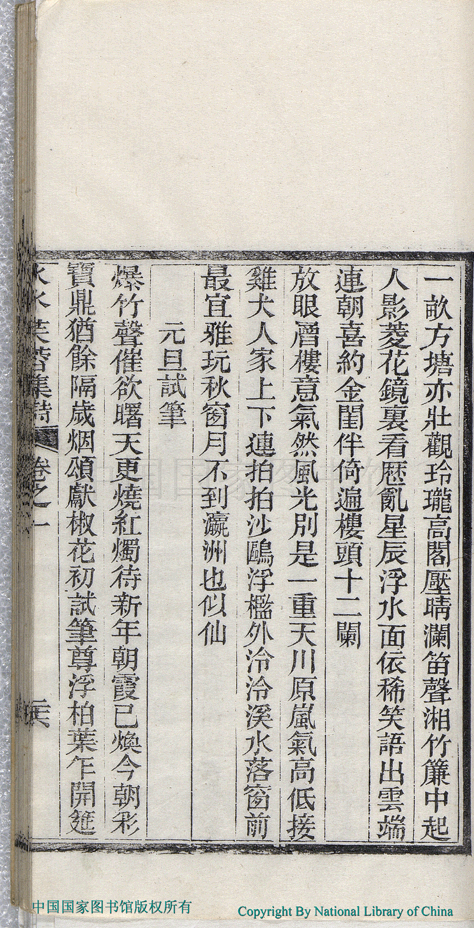 一畝方塘亦壯觀玲瓏高閣壓晴瀾笛聲湘竹簾中起
人影菱花鏡裏看歷亂星辰浮水面依稀笑語出雲端
連朝喜約金閨伴倚遍樓頭十二闌
放眼層樓意氣然風光別是一重天川原嵐氣高低接
雞犬人家上下連拍拍沙鷗浮檻外泠泠溪水落窗前
最宜雅玩秋窗月不到瀛洲也似仙
元旦試筆
爆竹聲催欲曙天更燒紅燭待新年朝霞已煥今朝彩
寶鼎猶餘隔歲烟頌獻椒花初試筆尊浮柏葉乍開筵
集詩
卷之一
中国国家图书馆版权所有
Copyright By National Library of China